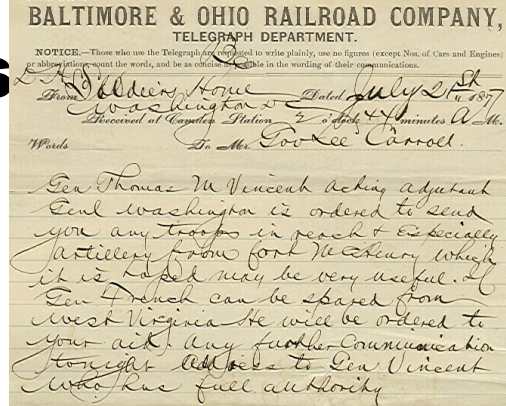 BALTIMORE & OHIO RAILROAD COMPANY,
TELEGRAPH DEPARTMENT.
NOTICE.—Those who use the Telegraph are requested to write plainly, use no figures (except Nos. of Cars and Engines)
or abbreviations, count the words, and be as concise as possible in the wording of their communications.
From Soldiers Home Dated July 21st 1877
Washington DC
Received at Camden Station 2 o'clock 44 minutes A M.
Words To Mr. Gov Lee Carroll.
Gen Thomas M Vincent acting adjutant
Genl Washington is ordered to send
you any troops in reach & Especially
Artillery from fort McHenry which
it is hoped may be very useful. If
Gen French can be spared from
West Virginia He will be ordered to
your aid. Any further Communication
tonight address to Gen Vincent
who has full authority